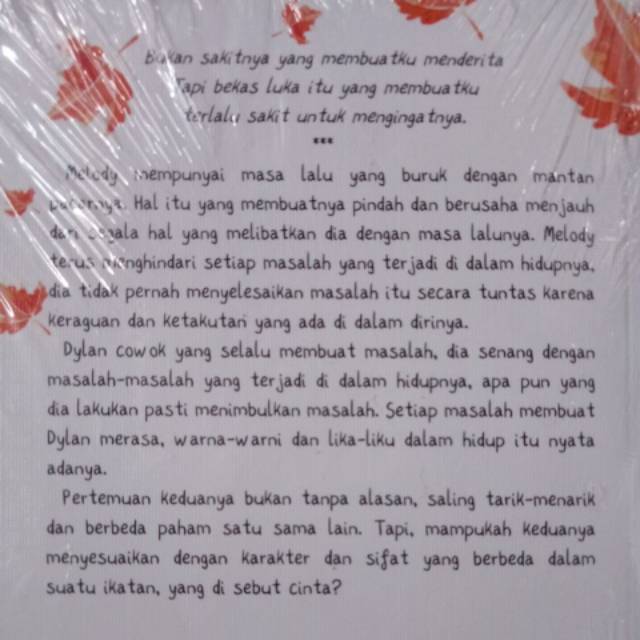 Bukan sakitnya yang membuatku menderita
Tapi bekas luka itu yang membuatku
terlalu sakit untuk mengingatnya.
***
Melody mempunyai masa lalu yang buruk dengan mantan
pacarnya. Hal itu yang membuatnya pindah dan berusaha menjauh
dari segala hal yang melibatkan dia dengan masa lalunya. Melody
terus menghindari setiap masalah yang terjadi di dalam hidupnya,
dia tidak pernah menyelesaikan masalah itu secara tuntas karena
keraguan dan ketakutan yang ada di dalam dirinya.
Dylan cowok yang selalu membuat masalah, dia senang dengan
masalah-masalah yang terjadi di dalam hidupnya, apa pun yang
dia lakukan pasti menimbulkan masalah. Setiap masalah membuat
Dylan merasa, warna-warni dan lika-liku dalam hidup itu nyata
adanya.
Pertemuan keduanya bukan tanpa alasan, saling tarik-menarik
dan berbeda paham satu sama lain. Tapi, mampukah keduanya
menyesuaikan dengan karakter dan sifat yang berbeda dalam
suatu ikatan, yang di sebut cinta?